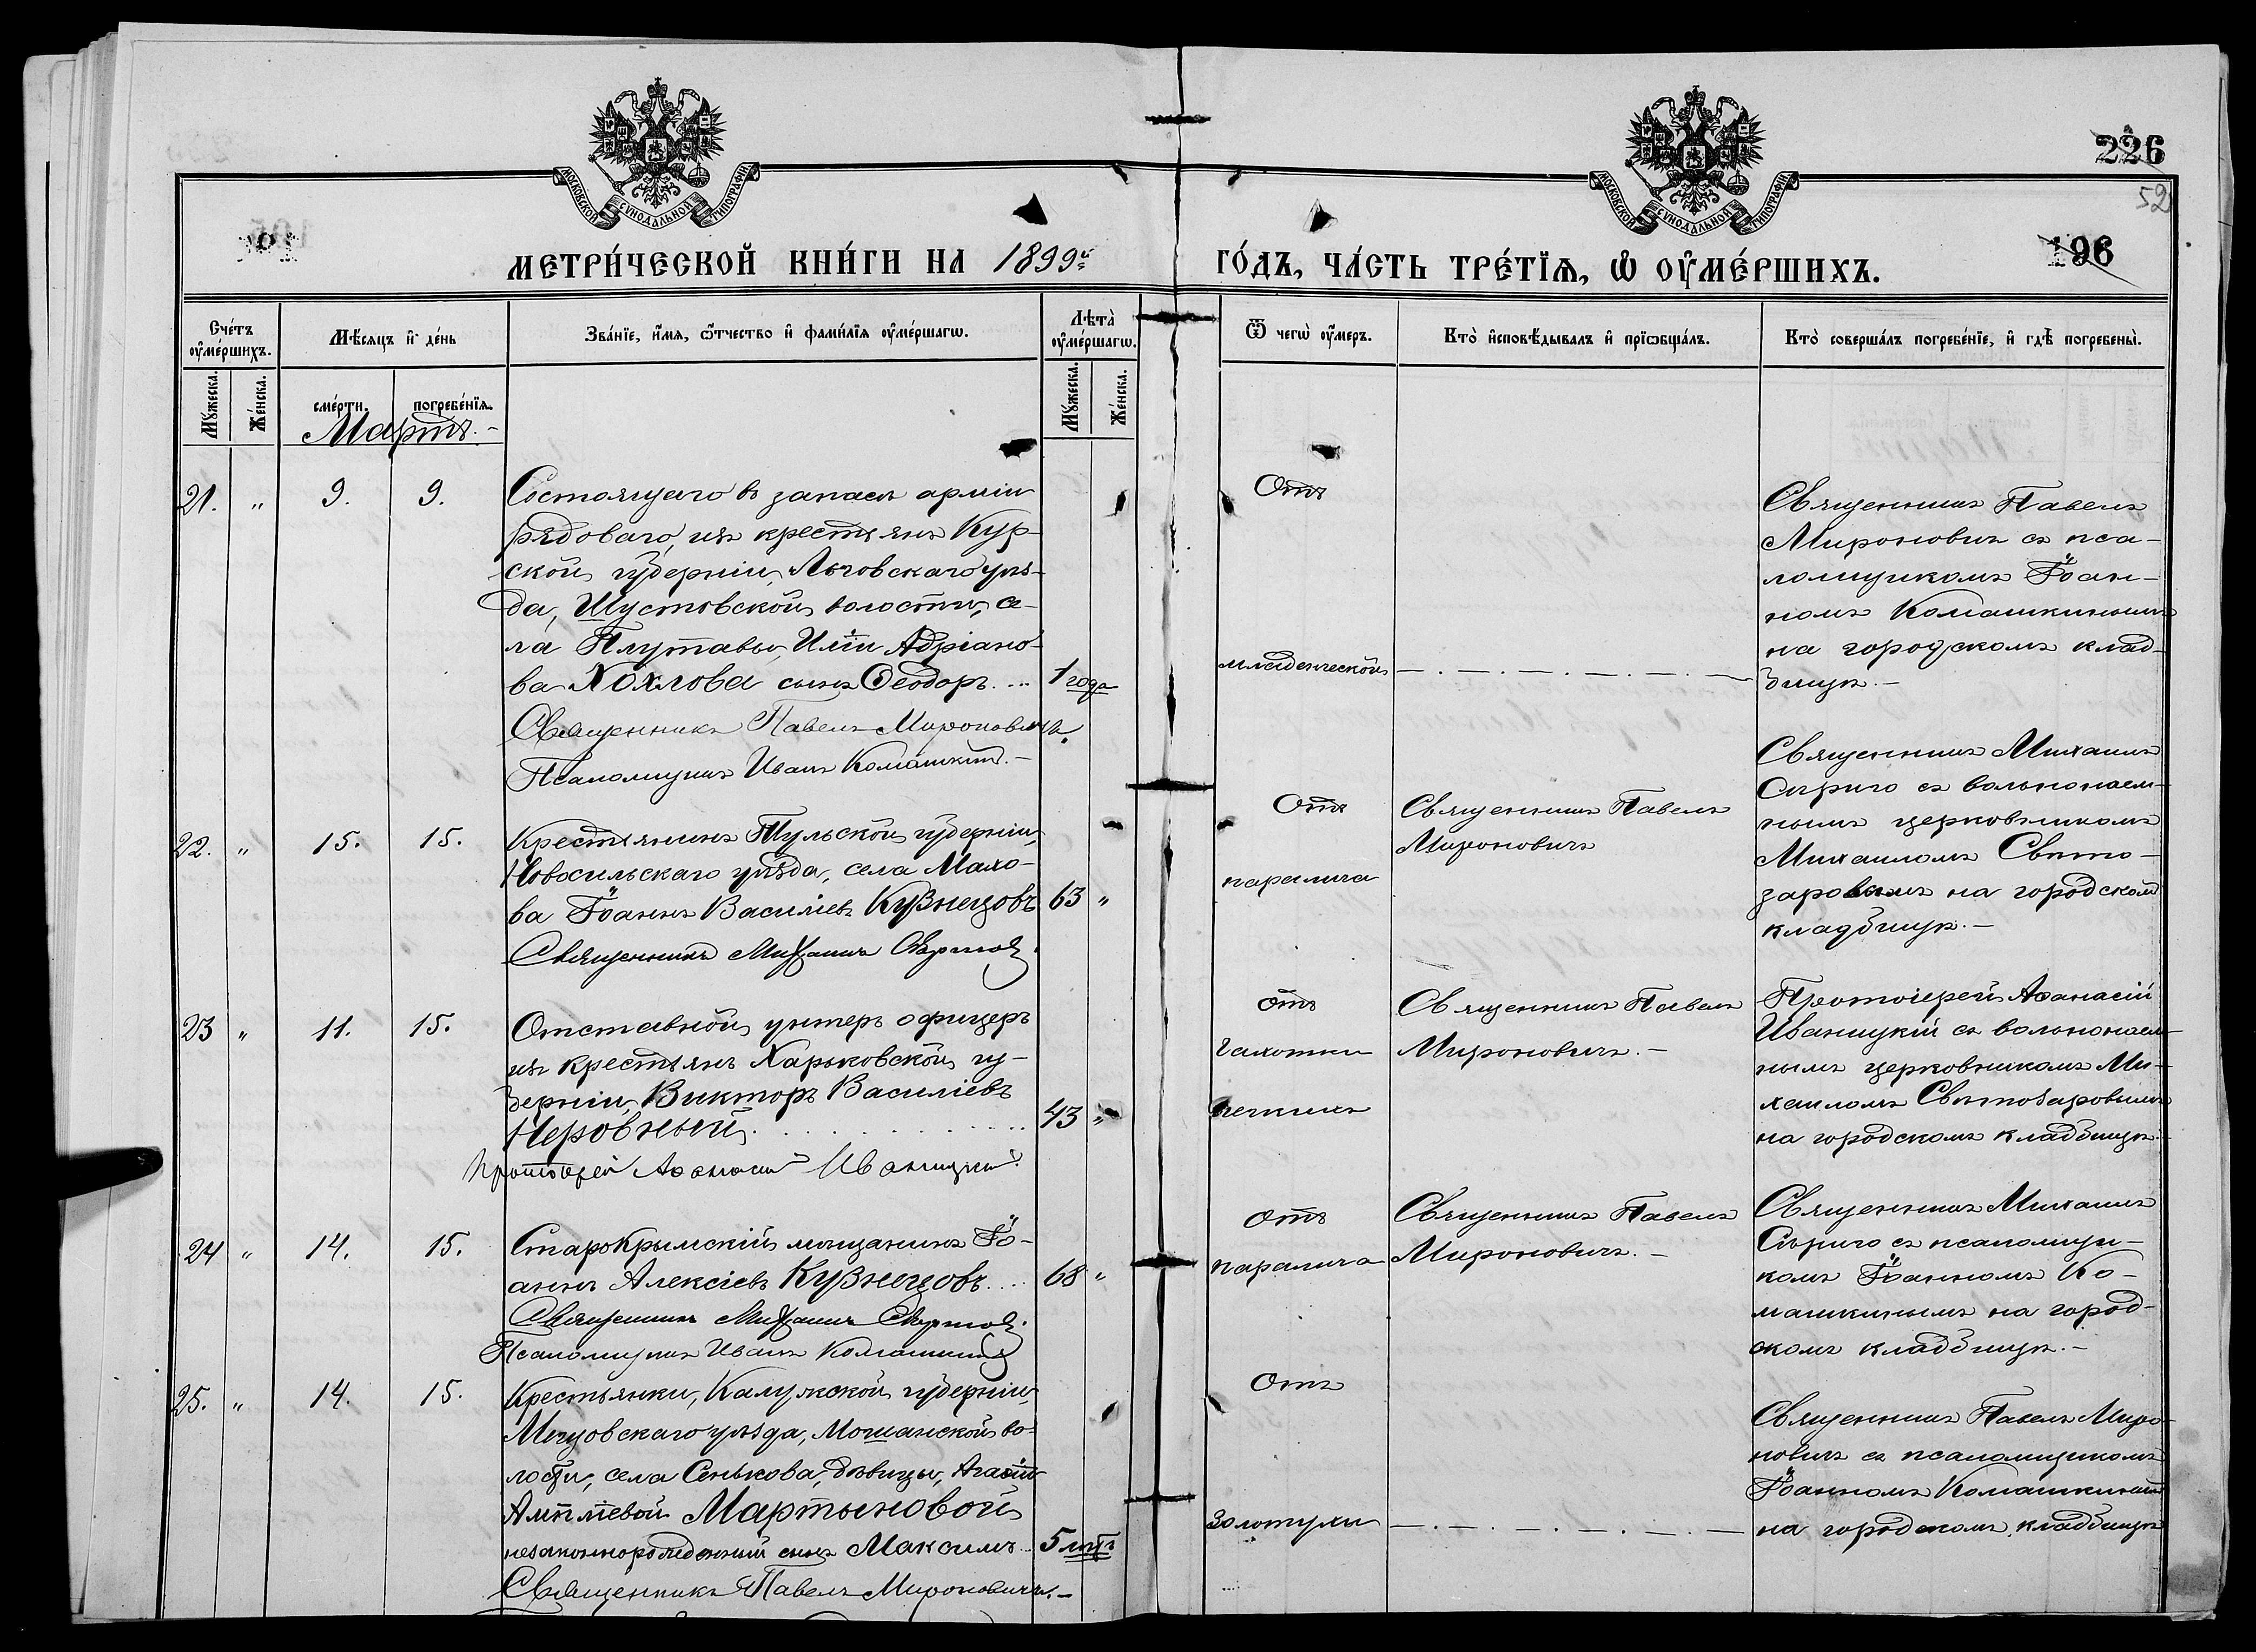 МОСКОВСКОЙ СѴНОДАЛЬНОЙ ТИПОГРАФІИ
МОСКОВСКОЙ СѴНОДАЛЬНОЙ ТИПОГРАФІИ
226
52
196
МЕТРИ́ЧЕСКОЙ КНИ́ГИ НА 1899й
ГО́ДЪ, ЧА́СТЬ ТРЕ́ТІѦ, Ѡ҆ ОУ҆МЕ́РШИХЪ.
Сче́тъ оу҆ме́ршихъ.
Мѣ́сяцъ и҆ де́нь
Зва́нїе, и҆́мя, ѻ҆́тчество и҆ фами́лїя оу҆ме́ршагѡ.
Лѣта̀ оу҆ме́ршагѡ.
Ѿ чегѡ̀ оу҆́меръ.
Кто̀ и҆сповѣ́дывалъ и҆ прїѡбща́лъ.
Кто̀ соверша́лъ погребе́нїе, и҆ гдѣ̀ погребены̀.
Му́жеска.
Же́нска.
сме́рти.
погребе́нїя.
Му́жеска.
Же́нска.
Мартъ.-
21. " 9. 9.
Состоящаго въ запасѣ арміи
рядоваго, изъ крестьянъ Кур-
ской губерніи, Льговскаго уѣз-
да, Шустовской волости, се-
ла Плутавы, Иліи Адріано-
ва Хохлова сынъ Ѳеодоръ. ... 1 года
Священникъ Павелъ Мироновичъ.
Псаломщикъ Иванъ Комашкинъ.-
Отъ
младенческой
Священникъ Павелъ
Мироновичъ съ пса-
ломщикомъ Іоан-
номъ Комашкинымъ
на городскомъ клад-
бищѣ.-
22. " 15. 15.
Крестьянинъ Тульской губерніи,
Новосильскаго уѣзда, села Мало-
ва Іоаннъ Василіевъ Кузнецовъ 63 "
Священникъ Михаилъ
Отъ
паралича
Священникъ Павелъ
Мироновичъ
Священникъ Михаилъ
Сѣриго съ вольнонаем-
нымъ церковникомъ
Михаиломъ Свѣто-
заровымъ на городском
кладбищѣ.-
23 " 11. 15.
Отставной унтеръ офицеръ
изъ крестьянъ Харьковской гу-
берніи, Викторъ Василіевъ
Неровный. . . . . . . 43 "
Протоіерей Аѳанасій Иваницкій
отъ
чахотки
легкихъ
Священникъ Павелъ
Мироновичъ.-
Протоіерей Аѳанасій
Иваницкій съ вольнонаем-
нымъ церковникомъ Ми-
хаиломъ Свѣтозаровымъ
на городскомъ кладбищѣ.-
24 " 14. 15.
Старокрымскій мѣщанинъ Іо-
аннъ Алексіевъ Кузнецовъ. ... 68 "
Священникъ Михаилъ
Псаломщикъ Иванъ Комашкинъ
отъ
паралича
Священникъ Павелъ
Мироновичъ.-
Священникъ Михаилъ
Сѣриго съ псаломщи-
комъ Іоанномъ Ко-
машкинымъ на город-
скомъ кладбищѣ.-
25. " 14. 15.
Крестьянки, Калужской губерніи,
Мещовскаго уѣзда, Мошанской во-
лости, села Сенькова, дѣвицы, Агаѳіи
Мартыновой
незаконнорожденный сынъ Максимъ 5 мѣс
Священникъ Павелъ Мироновичъ.-
Отъ
Золотухи
Священникъ Павелъ Миро-
новичъ съ псаломщикомъ
Іоанномъ Комашкинымъ
на городскомъ кладбищѣ